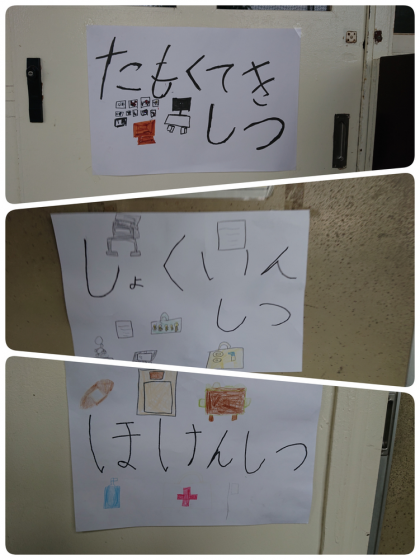 たもくてき
しつ
しょくいん
しつ
ほけんしつ